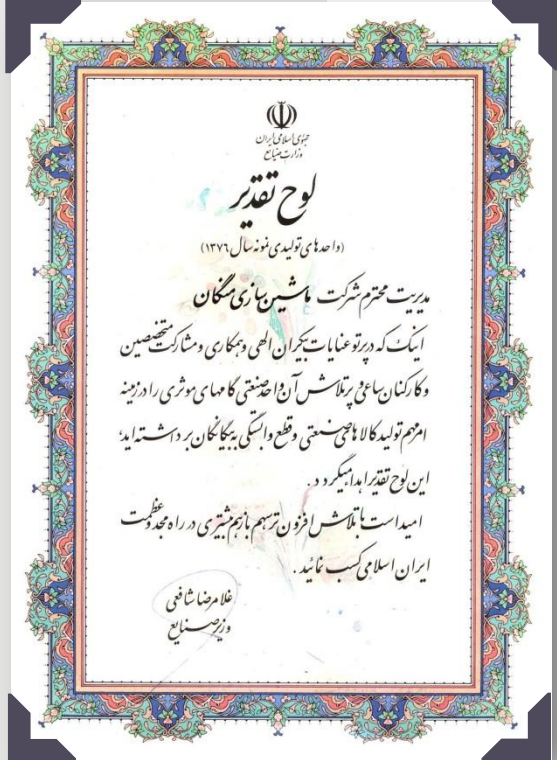 جمهوری اسلامی ایران
وزارت صنایع
لوح تقدیر
(واحدهای تولیدی نمونه سال ۱۳۷۶)
مدیریت محترم شرکت ماشین سازی مگان
اینک که در پرتو عنایات بیکران الهی و همکاری و مشارکت متخصصین
و کارکنان ساعی و پرتلاش آن واحد صنعتی گامهای موثری را در زمینه
امر مهم تولید کالاهای صنعتی و قطع وابستگی به بیگانگان برداشته اید؛
این لوح تقدیر اهدا میگردد.
امید است با تلاش افزون تر سهم باز هم بیشتری در راه مجد و عظمت
ایران اسلامی کسب نمائید.
غلامرضا شافعی
وزیر صنایع